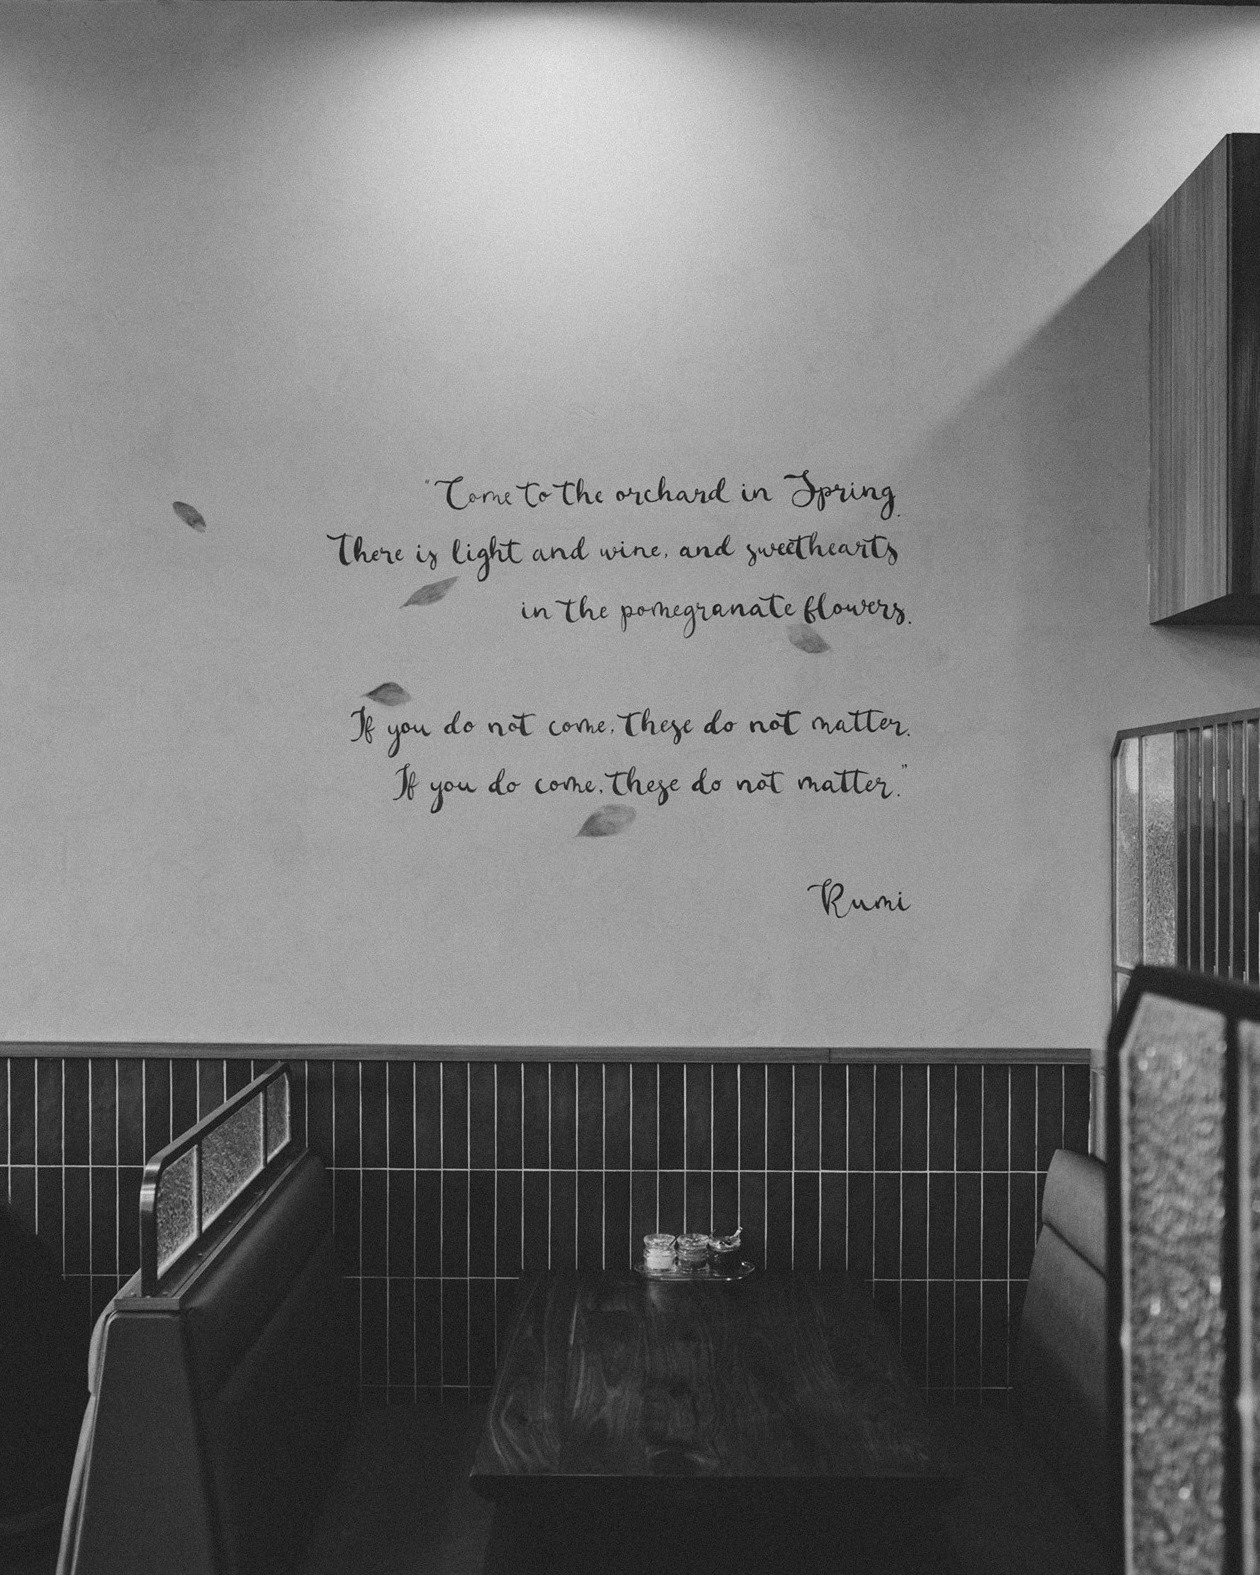 "Come to the orchard in Spring.
There is light and wine, and sweethearts
in the pomegranate flowers.
If you do not come, these do not matter.
If you do come, these do not matter."
Rumi